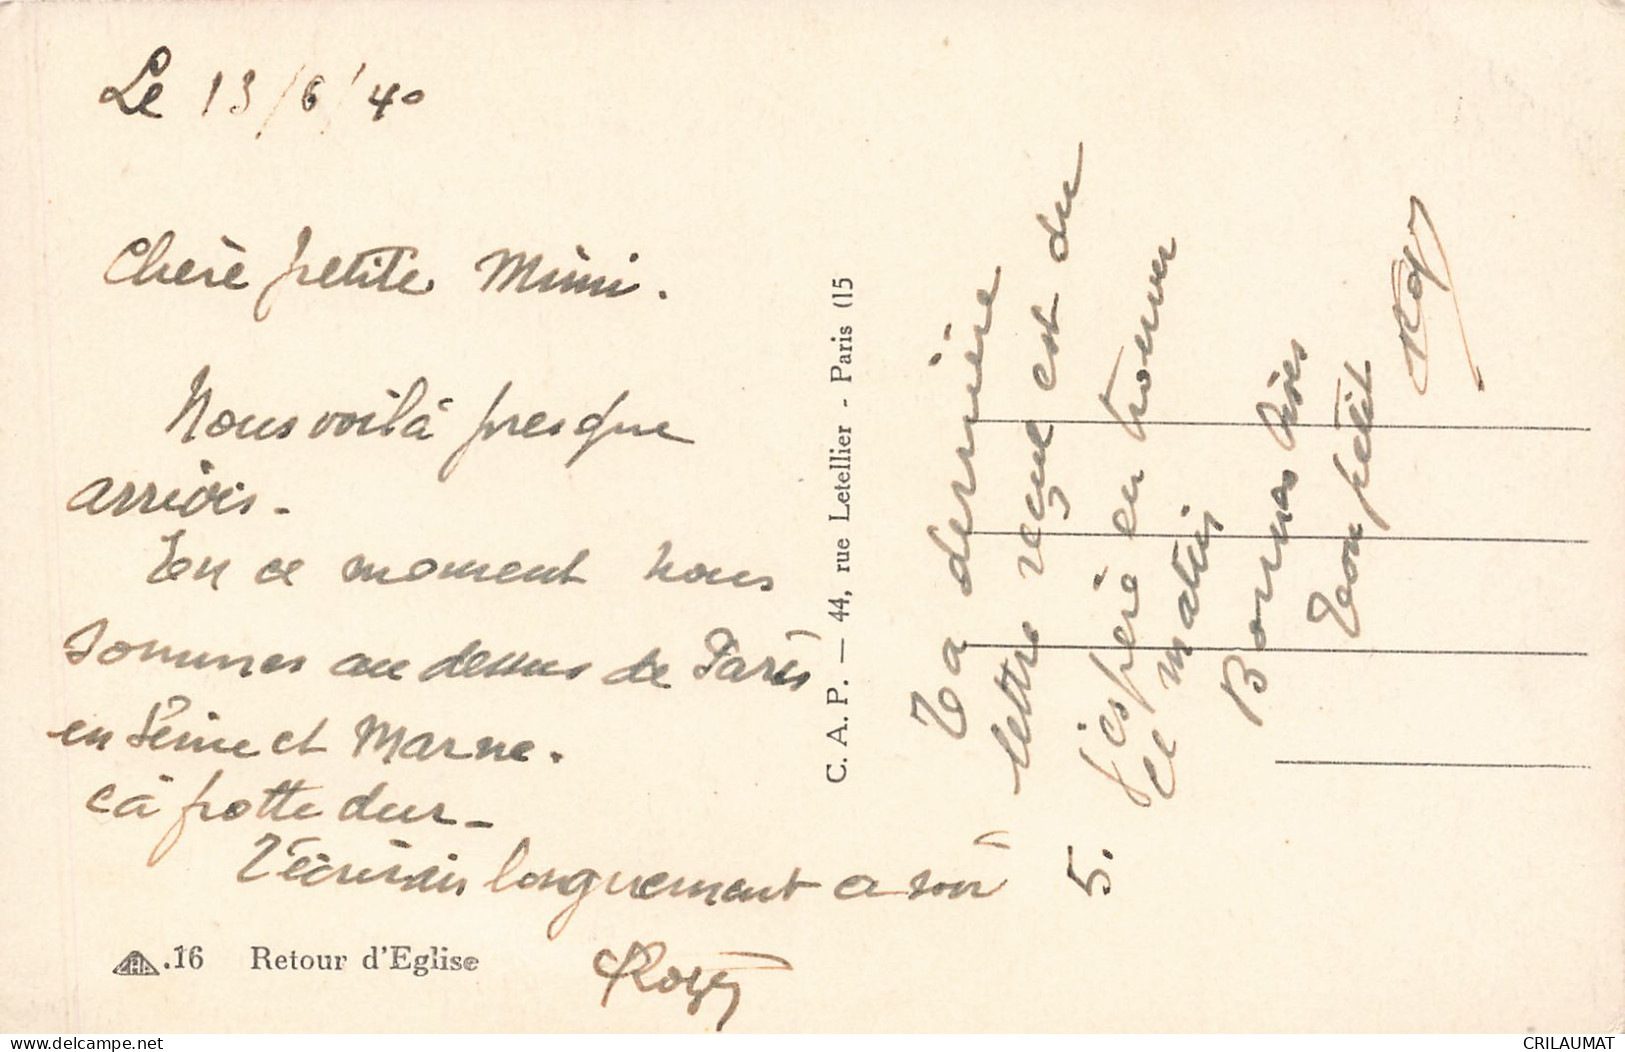 Le 13/6/40
Chère petite Mimi.
Nous voilà presque
arrivés.
En ce moment nous
sommes au dessus de Paris
en Seine et Marne.
Cà hotte dur_
T'écrirais longuement ce soir
Roger
Ta dernière
lettre reçue est du
5. j'espère en trouver
ce matin
Bonnes bises
Ton petit
Rog
C. A. P. — 44, rue Letellier - Paris (15
CAP .16 Retour d'Eglise
delcampe.net
CRILAUMAT